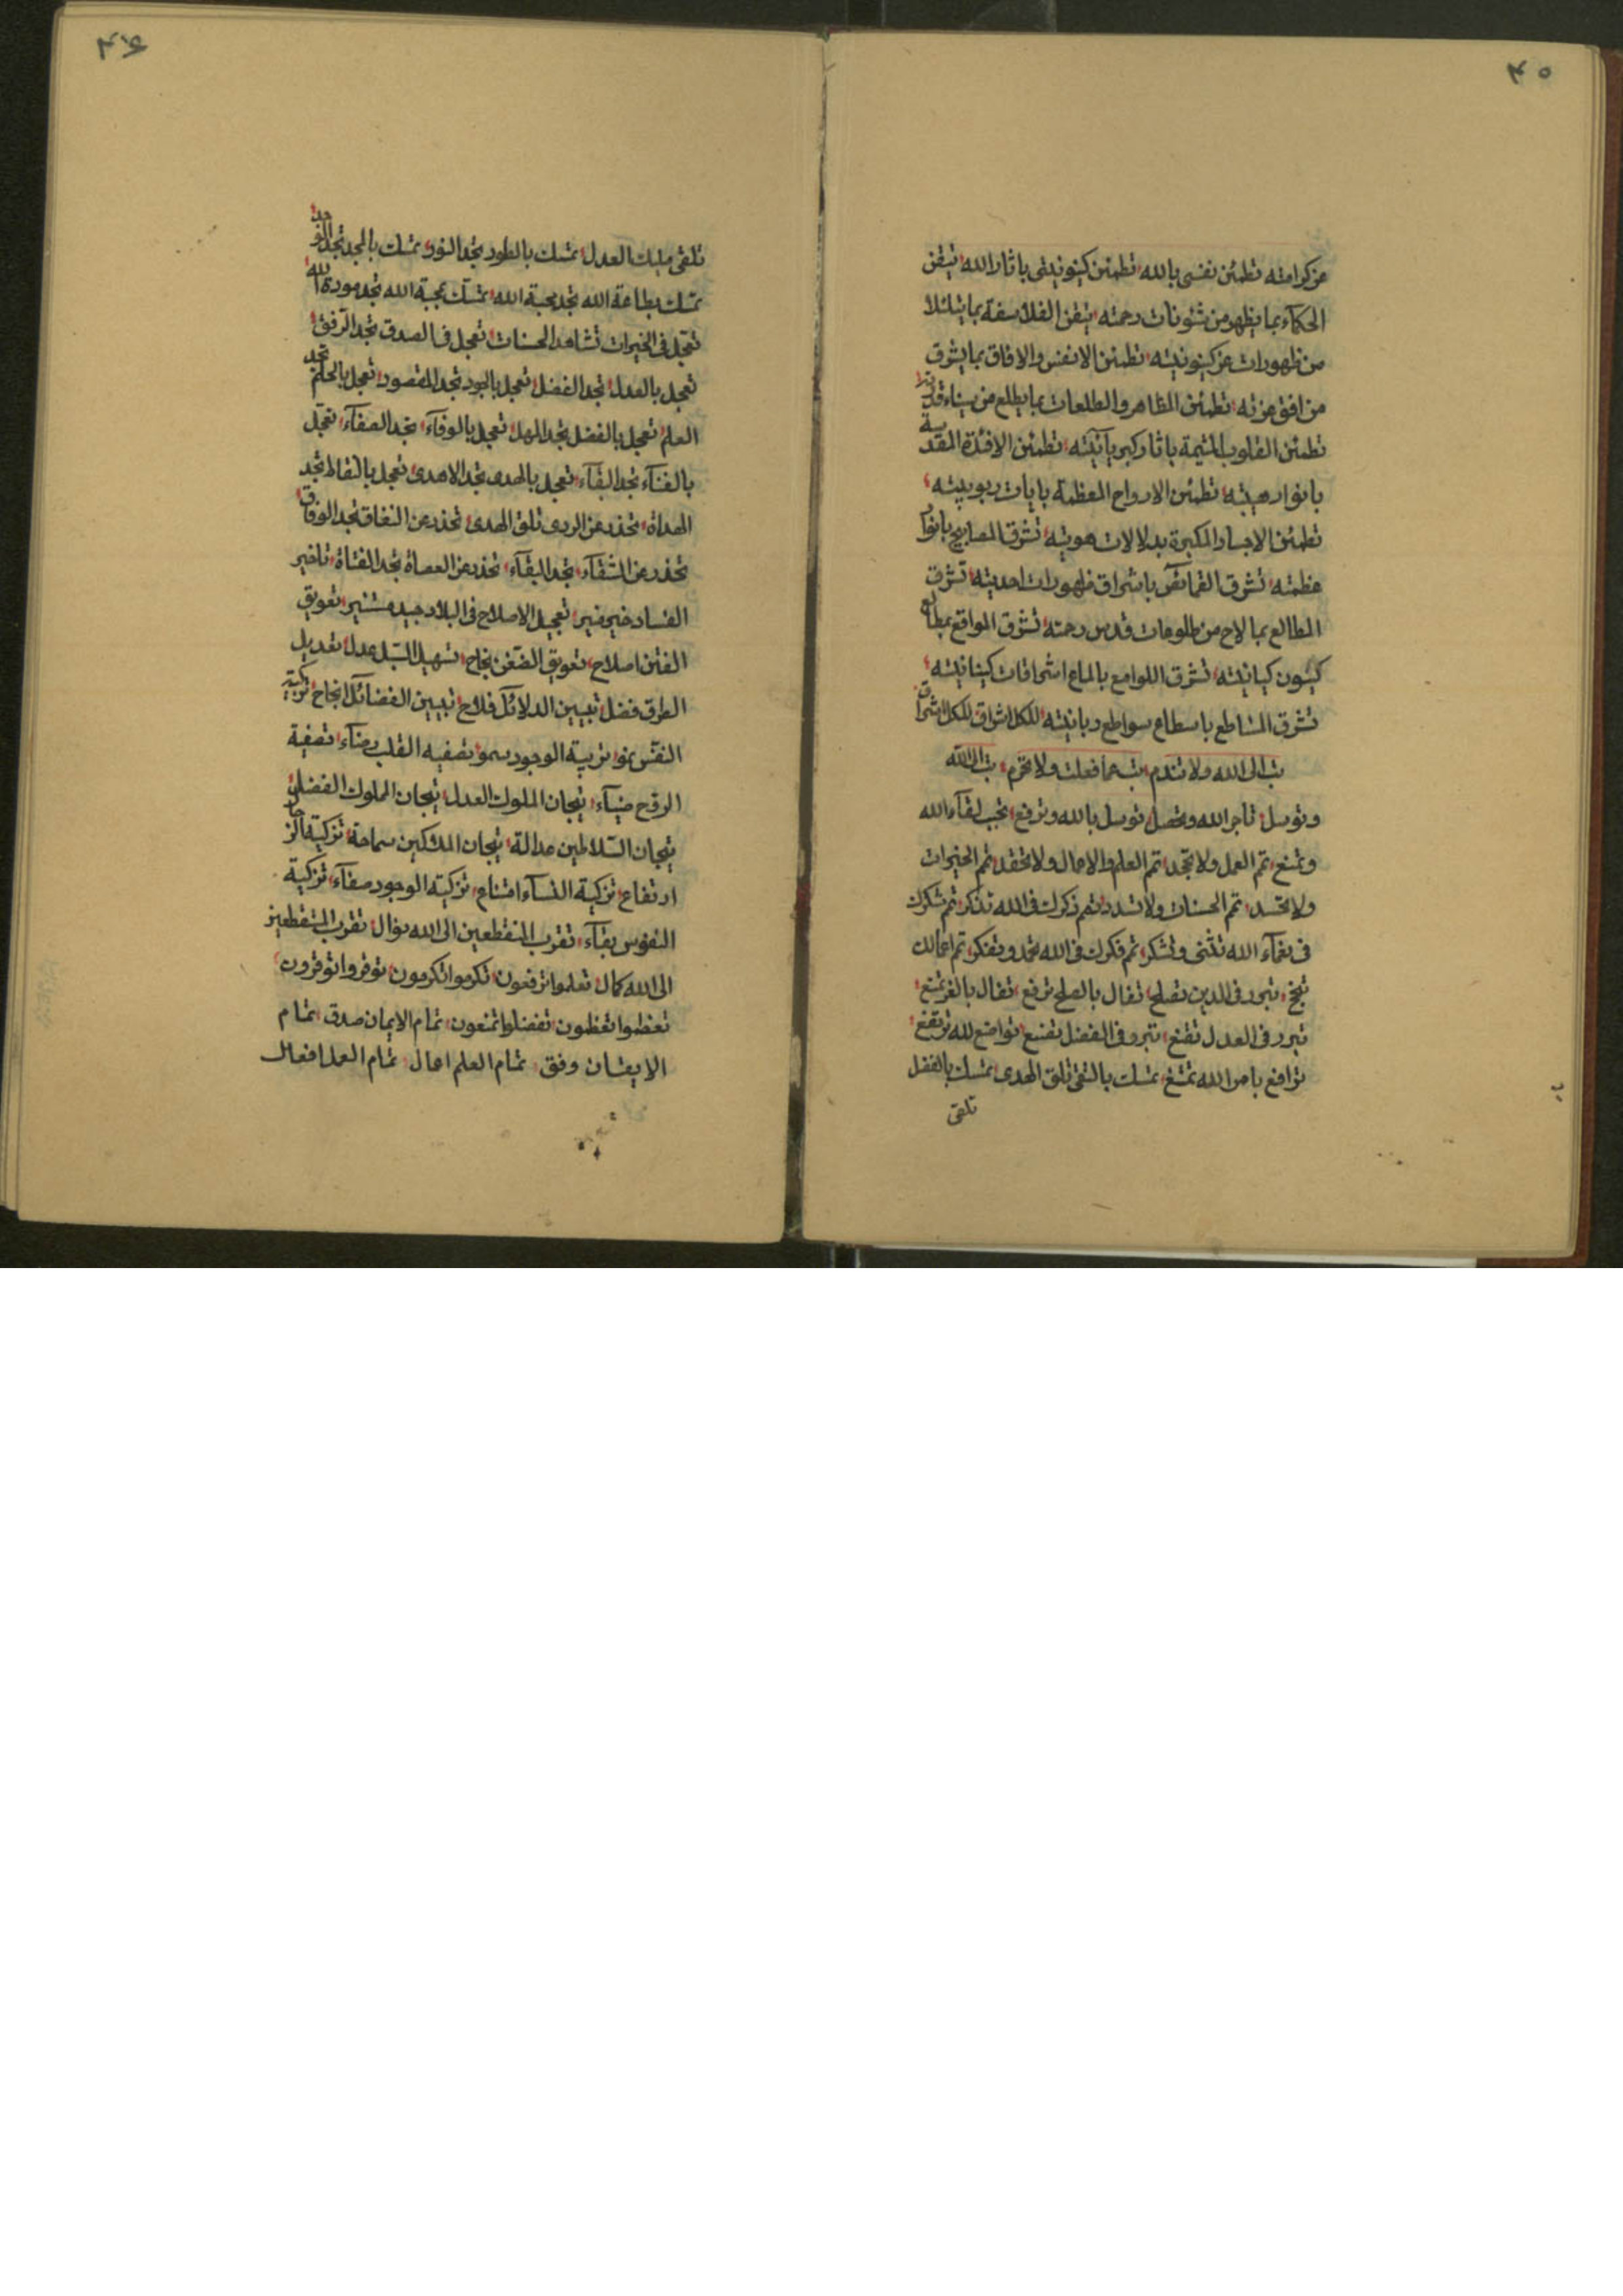 ٤٥
عن كرامته تطمئن نفسى بالله تطمئن كينونيتى باثار الله تيقن
الحكمآء بما يظهر من شئونات رحمته تيقن الفلاسفة بما يتلئلا
من ظهورات عن كينونيته تطمئن الانفس والافاق بما يشرق
من افق عزته تطمئن المظاهر والطلعات بما يطلع من سيناء قدرته
تطمئن القلوب المتيمة باثار كبريآئيته تطمئن الافئدة المقدسة
بانوار هيبته تطمئن الارواح المعظمة بايات ربوبيته
تطمئن الاجساد المكبرة بدلالات هويته تشرق المصابيح بانوار
عظمته تشرق باشراق ظهورات احديته تشرق
المطالع بما لاح من طلوعات قدس رحمته تشرق المواقع بمطالع
كينون كيانيته تشرق اللوامع بالماع اشراقات كينانيته
تشرق الساطع باسطاع سواطع ربانيته للكل اشراق للكل اشراق
تب الى الله ولا تندم تب عما فعلت ولا تحرم تب الى الله
وتوسل تاجر الله وتحصل توسل بالله وترفع تحب لقآء الله
وتمنع تم العمل ولا تجد تم العلم والاعمال ولا تحقد تم الخيرات
ولا تحسد تم الحسنات ولا تشدد تم ذكرك فى الله تذكر تم شكرك
فى نعمآء الله تثنى وتشكر تم فكرك فى الله تحمد وتفكر تم اعمالك
تنجح تبرر فى الدين تصلح تفال بالصلح ترفع تفال بالعز تمنع
تبرر فى العدل تقنع تبرر فى الفضل تقنع تواضع لله ترتفع
ترافع بامر الله تمتنع تمسك بالتقى تلق الهدى تمسك بالفضل
تلقى
٤٦
تلقى مليك العدل تمسك بالطور تجد النور تمسك بالمجد تجد الوجد
تمسك بطاعة الله تجد محبة الله تمسك بمحبة الله تجد مودة الله
تعجل فى الخيرات تشاهد الحسنات تعجل فى الصدق تجد الرفق
تعجل بالعدل تجد الفضل تعجل بالجود تجد المقصود تعجل بالحلم تجد
العلم تعجل بالفضل تجد المهل تعجل بالوفآء تجد الصفآء تعجل
بالفنآء تجد البقآء تعجل بالهدى تجد الاهدى تعجل تجد
الهداة تحذر عن الردى تلق الهدى تحذر عن النفاق تجد الوفاق
تحذر عن الشقآء تجد البقآء تحذر عن العصاة تجد تاخير
الفساد خير تعجيل الاصلاح فى البلاد جيد تعويق
الفتن اصلاح تعويق الضغن نجاح تسهيل السبل عدل تعديل
الطرق فضل تبيين الدلائل فلاح تبيين الفضائل انجاح تربية
النفس نمو تربية الوجود سمو تصفيه القلب تصفية
الروح ضيآء تيجان الملوك العدل تيجان الملوك الفضل
تيجان السلاطين عدالة تيجان سماحة تزكية الرجال
ارتفاع تزكية النسآء امتناع تزكية الوجود صفآء تزكية
النفوس بقآء تقرب المنقطعين الى الله نوال تقرب المنقطعين
الى الله كمال تعلموا ترفعون تكرموا تكرمون توقروا توقرون
تعظموا تعظمون تفضلوا تمنعون تمام الايمان صدق تمام
الايقان وفق تمام العلم اعمال تمام العمل افعال